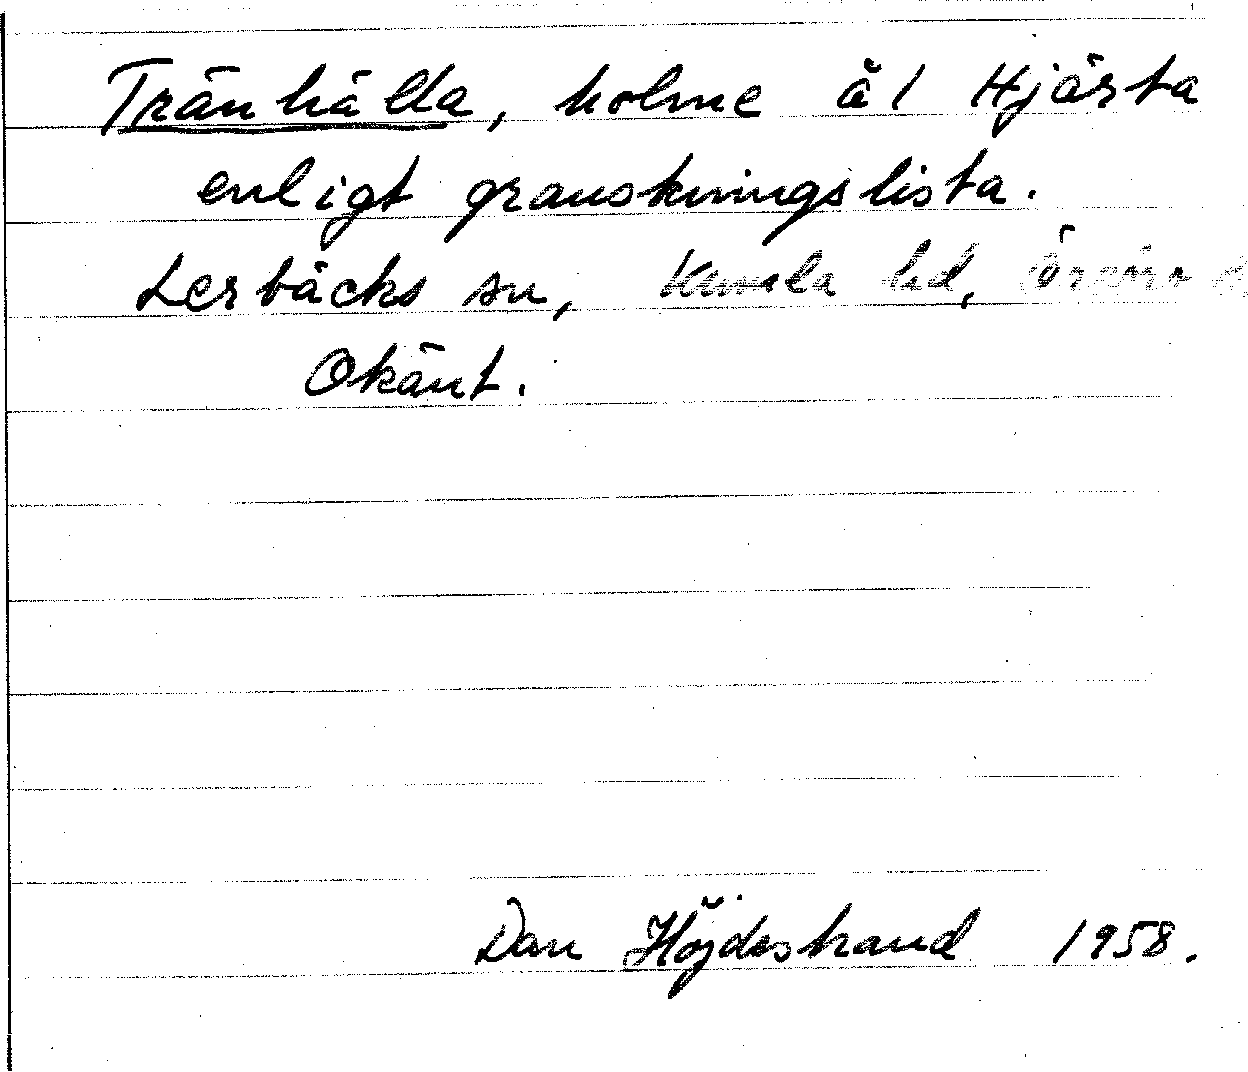 Tränhälla, holme ä 1 Hjärta
enligt granskningslista.
Lerbäcks sn, Kumla hd,
Okänt.
Dan Höjdestrand 1958.